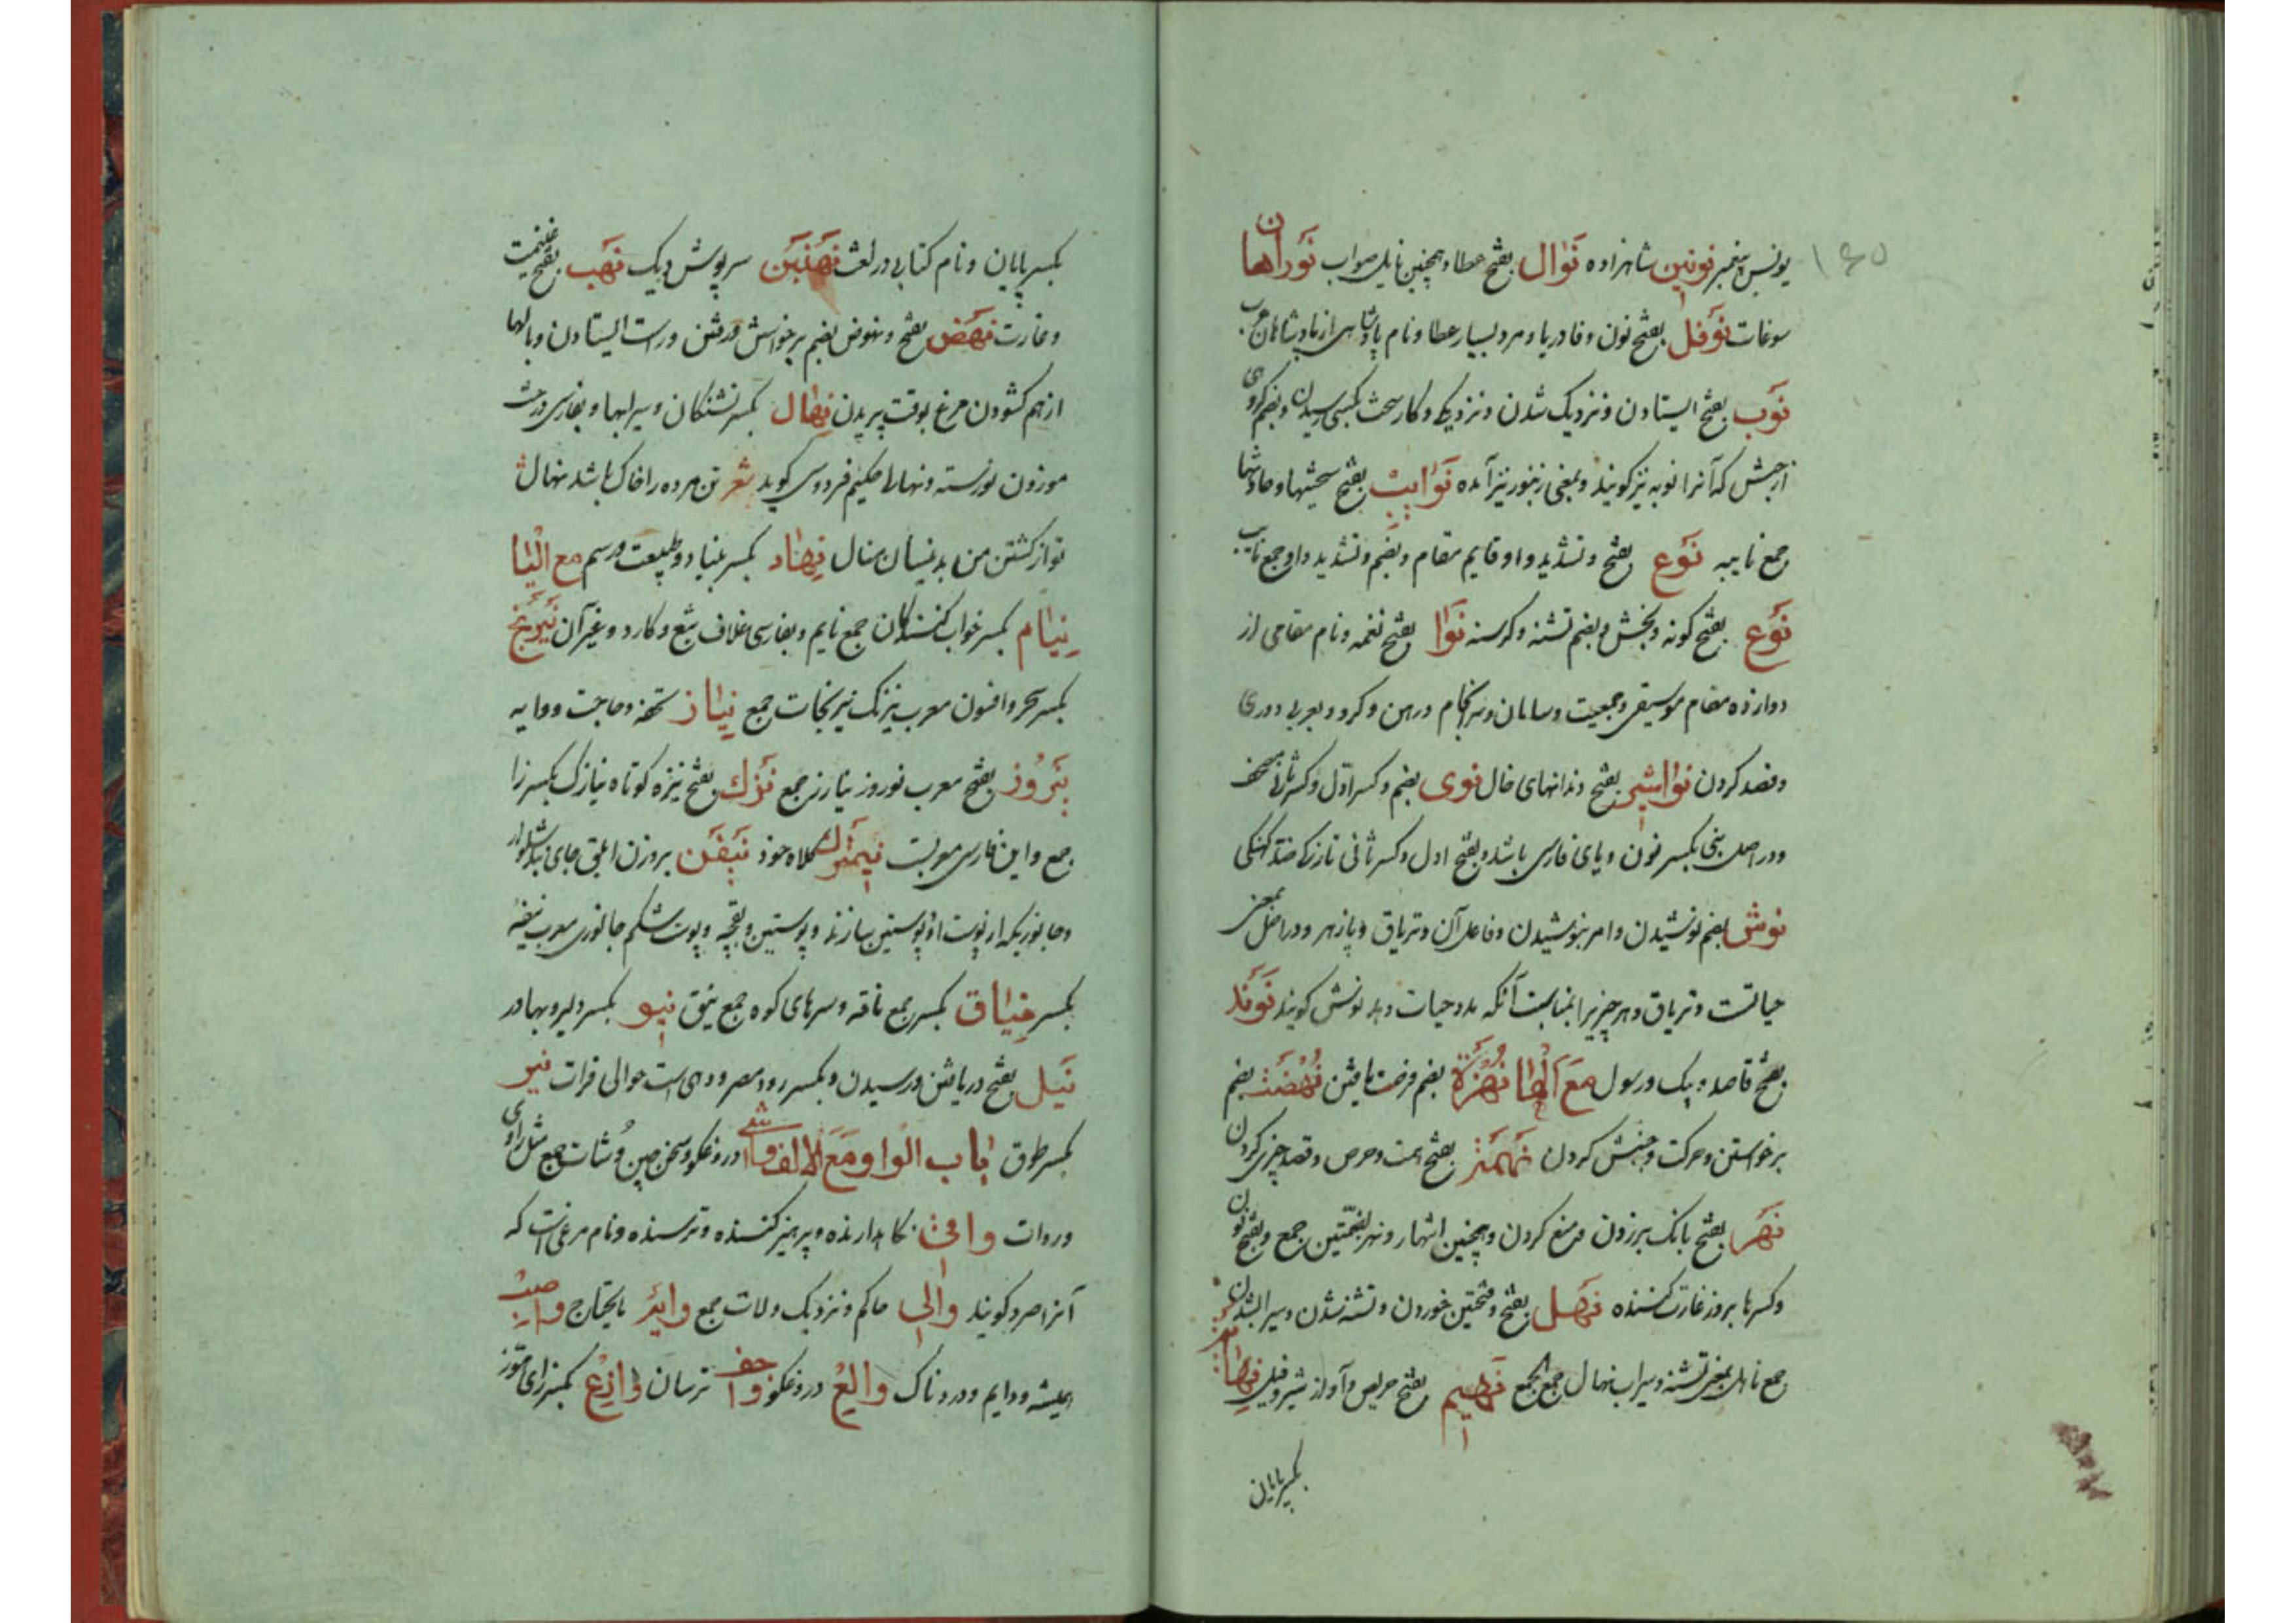 ۱۶۵
یونس پیغمبر نونین شاهزاده نوال بفتح عطا و همچنین نایل صواب نوراهان
سوغات نوفل بفتح نون و فا دریا و مرد بسیار عطا و نام پادشاهی از پادشاهان عرب
نوب بفتح ایستادن و نزدیک شدن و نزدیکی و کار سخت بکسی رسیدن و بضم کروهی
از حبش که آنرا نوبه نیز کویند و بمعنی زنبور نیز آمده نوایب بفتح سختیها و حادثها
جمع نایبه نوع بفتح و تشدید واو قایم مقام و بضم و تشدید واو جمع نایب
نوع بفتح کونه و بخش و بضم تشنه و کرسنه نوا بفتح نغمه و نام مقامی از
دوازده مقام موسیقی و جمعیت و سامان و سرانجام و رهن و کرو و بعربی دوری
و قصد کردن نواشر بفتح دندانهای فال نوی بضم و کسر اول و کسر ثانی مصحف
و در اصل بنی بکسر نون و یای فارسی باشد و بفتح اول و کسر ثانی تازکی ضد کهنکی
نوش بضم نوشیدن و امر بنوشیدن و فاعل آن و تریاق و پازهر و در اصل بمعنی
حیاتست و تریاق و هر چیزیرا بمناسبت آنکه مدد حیات دهد نوش کویند نوند
بفتح قاصد و پیک و رسول مع الها نهزة بضم فرصت یافتن نهضت بضم
برخواستن و حرکت و جنبش کردن نهمت بفتح همت و حرص و قصد چیزی کردن
نهر بفتح بانک برزدن و منع کردن و همچنین انتهار و نهر بضمتین جمع و بفتح نون
و کسر ها بروز غارت کننده نهل بفتح و فتحتین خوردن و تشنه شدن و سیراب شدن
جمع ناهل بمعنی تشنه و سیراب نهال جمع الجمع نهیم بفتح حریص و آواز شیر و فیل نهایة
بکسر پایان
بکسر پایان و نام کتابی در لغت نهنبن سرپوش دیک نهب بفتح غنیمت
و غارت نهض بفتح و نهوض بضم برخواستن و رفتن و راست ایستادن و بالها
از هم کشودن مرغ بوقت پریدن نهال بکسر تشنکان و سیرابها و بفارسی درخت
موزون نورسته و نهالی حکیم فردوسی کوید شعر تن مرده را خاک باشد نهال
تو از کشتن من بدینسان منال نهاد بکسر بنیاد و طبیعت و رسم مع الیا
نیام بکسر خواب کنندکان جمع نایم و بفارسی غلاف تیغ و کارد و غیر آن نیرنج
بکسر سحر و افسون معرب نیرنک نیرنجات جمع نیاز تحفه و حاجت و وایه
نیروز بفتح معرب نوروز نیارز جمع نیزک بفتح نیزه کوتاه نیازک بکسر زا
جمع و این فارسی معربست نیمترک کلاه خود نیفق بر وزن ابلق جای بند شلوار
و جانوریکه از پوست او پوستین سازند و پوستین و بقچه و پوست شکم جانوری معرب نیفه
بکسر نیاق بکسر جمع ناقه و سرهای کوه جمع نیق نیو بکسر دلیر و بهادر
نیل بفتح دریافتن و رسیدن و بکسر رود مصر و دهی است حوالی فرات نیر
بکسر طوق باب الواو مع الالف واشی دروغکو و سخن چین وشات جمع مثل راوی
و روات واقی نکاهدارنده و پرهیز کننده و ترسنده و نام مرغی است که
آنرا صرد کویند والی حاکم و نزدیک ولات جمع وایر مایحتاج واصب
همیشه و دایم و دردناک والع دروغکو واجف ترسان وازع بکسر زای